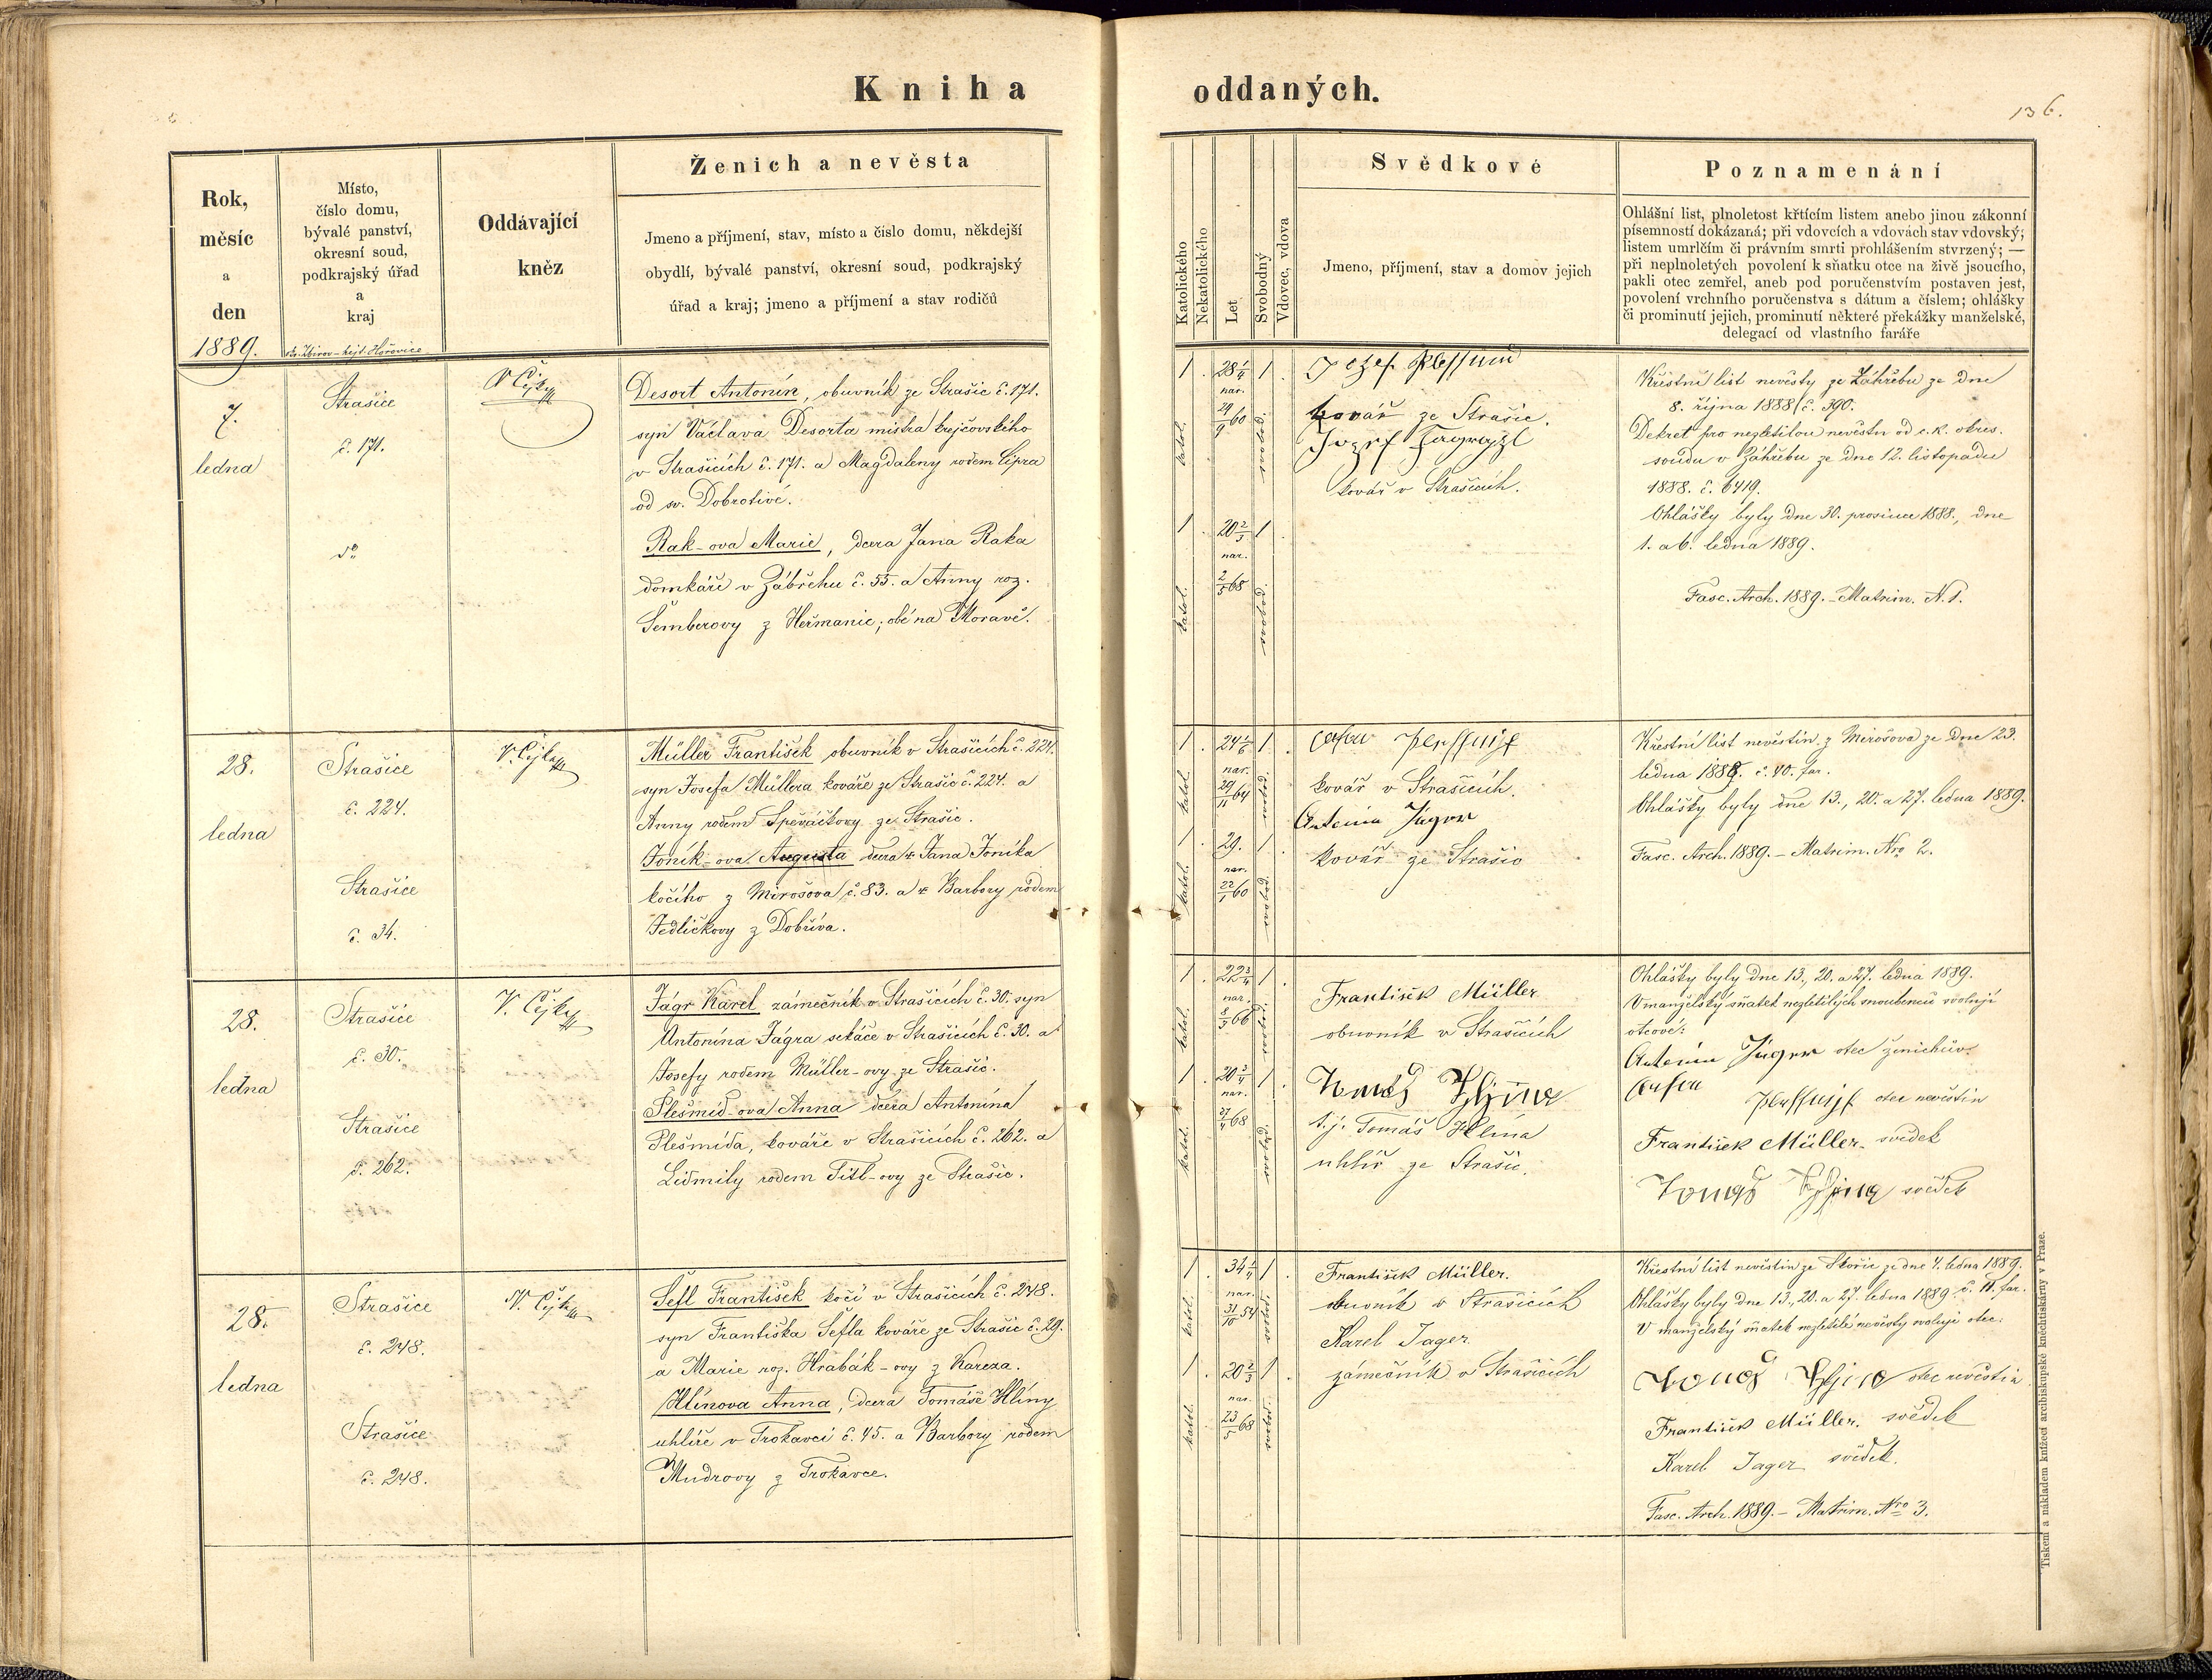 Kniha oddaných.
136.
Rok,
měsíc
a
den
1889.
Místo,
číslo domu,
bývalé panství,
okresní soud,
podkrajský úřad
a
kraj
Oddávající
kněz
Ženich a nevěsta
Jmeno a příjmení, stav, místo a číslo domu, někdejší
obydlí, bývalé panství, okresní soud, podkrajský
úřad a kraj; jmeno a příjmení a stav rodičů
Katolického
Nekatolického
Let
Svobodný
Vdovec, vdova
Svědkové
Jmeno, příjmení, stav a domov jejich
Poznamenání
Ohlášní list, plnoletost křtícím listem anebo jinou zákonní
písemností dokázaná; při vdovcích a vdovách stav vdovský;
listem umrlčím či právním smrti prohlášením stvrzený; —
při neplnoletých povolení k sňatku otce na živě jsoucího,
pakli otec zemřel, aneb pod poručenstvím postaven jest,
povolení vrchního poručenstva s dátum a číslem; ohlášky
či prominutí jejich, prominutí některé překážky manželské,
delegací od vlastního faráře
7.
ledna
Strašice
č. 171.
dº
V. Cejka
Desort Antonín, obuvník ze Strašic č. 171.
syn Václava Desorta mistra krejčovského
v Strašicích č. 171. a Magdaleny rodem Cipra
od sv. Dobrotivé.
Rak-ova Marie, dcera Jana Raka
domkáře v Zábřehu č. 55. a Anny roz.
Šemberovy z Heřmanic; obé na Moravě.
1 . 28 1/4 1 .
nar.
29/9 60
katol.
svobod.
1 . 20 2/3 1
nar.
2/5 68
katol.
svobod.
kovář ze Strašic.
kovář v Strašicích.
Křestní list nevěsty ze Záhřebu ze dne
8. října 1888 č. 390.
Dekret pro nezletilou nevěstu od c. k. okres.
soudu v Záhřebu ze dne 12. listopadu
1888. č. 6419.
Ohlášky byly dne 30. prosince 1888., dne
1. a 6. ledna 1889.
Fasc. Arch. 1889. - Matrim. N. 1.
28.
ledna
Strašice
č. 224.
Strašice
č. 34.
V. Cejka
Müller František obuvník v Strašicích č. 224.
syn Josefa Müllera kováře ze Strašic č. 224. a
Anny rodem Speváčkovy ze Strašic.
Joník-ova Augusta dcera Jana Joníka
kočího z Mirošova č. 83. a Barbory rodem
Jedličkovy z Dobříva.
1 . 24 1/6 1 .
nar.
29/11 64
katol.
svobod.
1 . 29. 1 .
nar.
22/1 60
katol.
svobod.
kovář v Strašicích.
Antonín Jágr
kovář ze Strašic
Křestní list nevěstin z Mirošova ze dne 23.
ledna 1889. č. 40. far.
Ohlášky byly dne 13., 20. a 27. ledna 1889.
Fasc. Arch. 1889. - Matrim. Nro 2.
28.
ledna
Strašice
č. 30.
Strašice
č. 262.
V. Cejka
Jágr Karel zámečník v Strašicích č. 30. syn
Antonína Jágra sekáče v Strašicích č. 30. a
Josefy rodem Müller-ovy ze Strašic.
Plešmíd-ova Anna dcera Antonína
Plešmída, kováře v Strašicích č. 262. a
Lidmily rodem Titl-ovy ze Strašic.
1 . 22 3/4 1 .
nar.
8/3 66
katol.
svobod.
1 . 20 3/4 1 .
nar.
27/4 68
katol.
svobod.
František Müller
obuvník v Strašicích
Tomáš Hlína
t. j. Tomáš Hlína
uhlíř ze Strašic.
Ohlášky byly dne 13., 20. a 27. ledna 1889.
V manželský sňatek nezletilých snoubenců svolují
otcové:
Antonín Jágr otec ženichův.
otec nevěstin
František Müller. svědek
Tomáš Hlína svědek
28.
ledna
Strašice
č. 248.
Strašice
č. 248.
V. Cejka
Šefl František kočí v Strašicích č. 248.
syn Františka Šefla kováře ze Strašic č. 29.
a Marie roz. Hrabák-ovy z Kareza.
Hlínova Anna, dcera Tomáše Hlíny
uhlíře v Trokavci č. 45. a Barbory rodem
Mudrovy z Trokavce.
1 . 34 1/4 1 .
nar.
31/10 54
katol.
svobod.
1 . 20 2/3 1 .
nar.
23/5 68
katol.
svobod.
František Müller.
obuvník v Strašicích
Karel Jager
zámečník v Strašicích
Křestní list nevěstin ze Skořic ze dne 4. ledna 1889.
Ohlášky byly dne 13., 20. a 27. ledna 1889 č. 11. far.
V manželský sňatek nezletilé nevěsty svoluje otec:
Tomáš Hlína otec nevěstin
František Müller. svědek
Karel Jager svědek.
Fasc. Arch. 1889. - Matrim. Nro 3.
Tiskem a nákladem knížecí arcibiskupské kněhtiskárny v Praze.